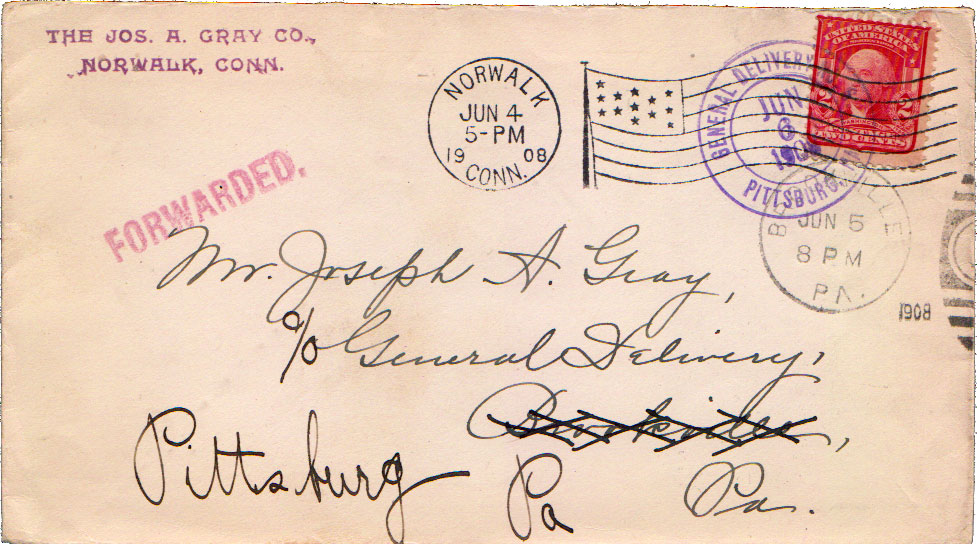 THE JOS. A. GRAY CO.,
NORWALK, CONN.
FORWARDED.
NORWALK
JUN 4
5-PM
19 08
CONN.
GENERAL DELIVERY
JUN
6
1908
PITTSBURG
UNITED STATES
OF AMERICA
WASHINGTON
2 2
TWO CENTS
BROOKVILLE
JUN 5
8 PM
PA.
1908
Mr. Joseph A. Gray,
c/o General Delivery,
Brookville,
Pa.
Pittsburg
Pa